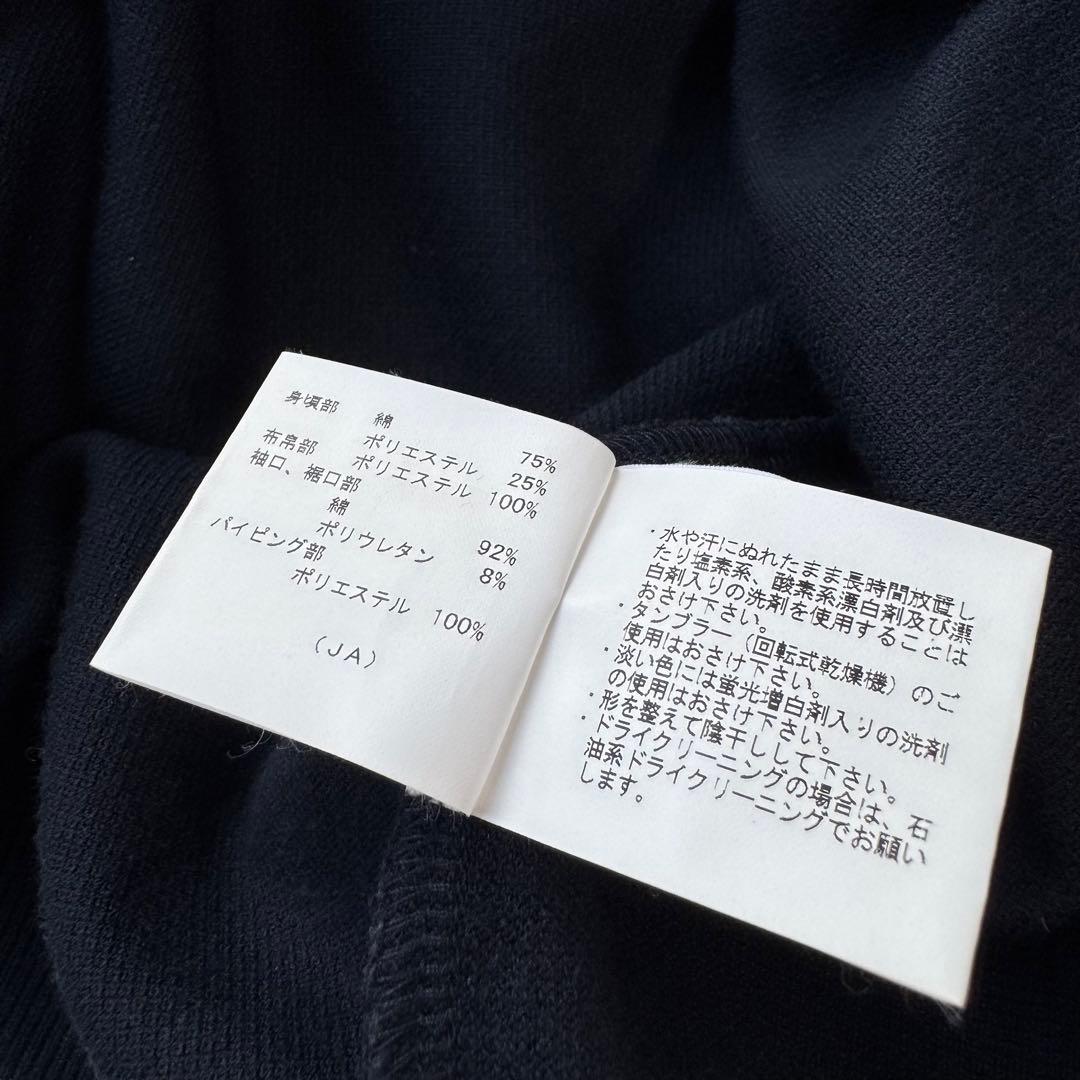 身頃部 綿 75%
ポリエステル 25%
布帛部 ポリエステル 100%
袖口、裾口部
綿 92%
ポリウレタン 8%
パイピング部
ポリエステル 100%
(JA)
・水や汗にぬれたまま長時間放置し
たり塩素系、酸素系漂白剤及び漂
白剤入りの洗剤を使用することは
おさけ下さい。
・タンブラー(回転式乾燥機)のご
使用はおさけ下さい。
・淡い色には蛍光増白剤入りの洗剤
の使用はおさけ下さい。
・形を整えて陰干しして下さい。
・ドライクリーニングの場合は、石
油系ドライクリーニングでお願い
します。